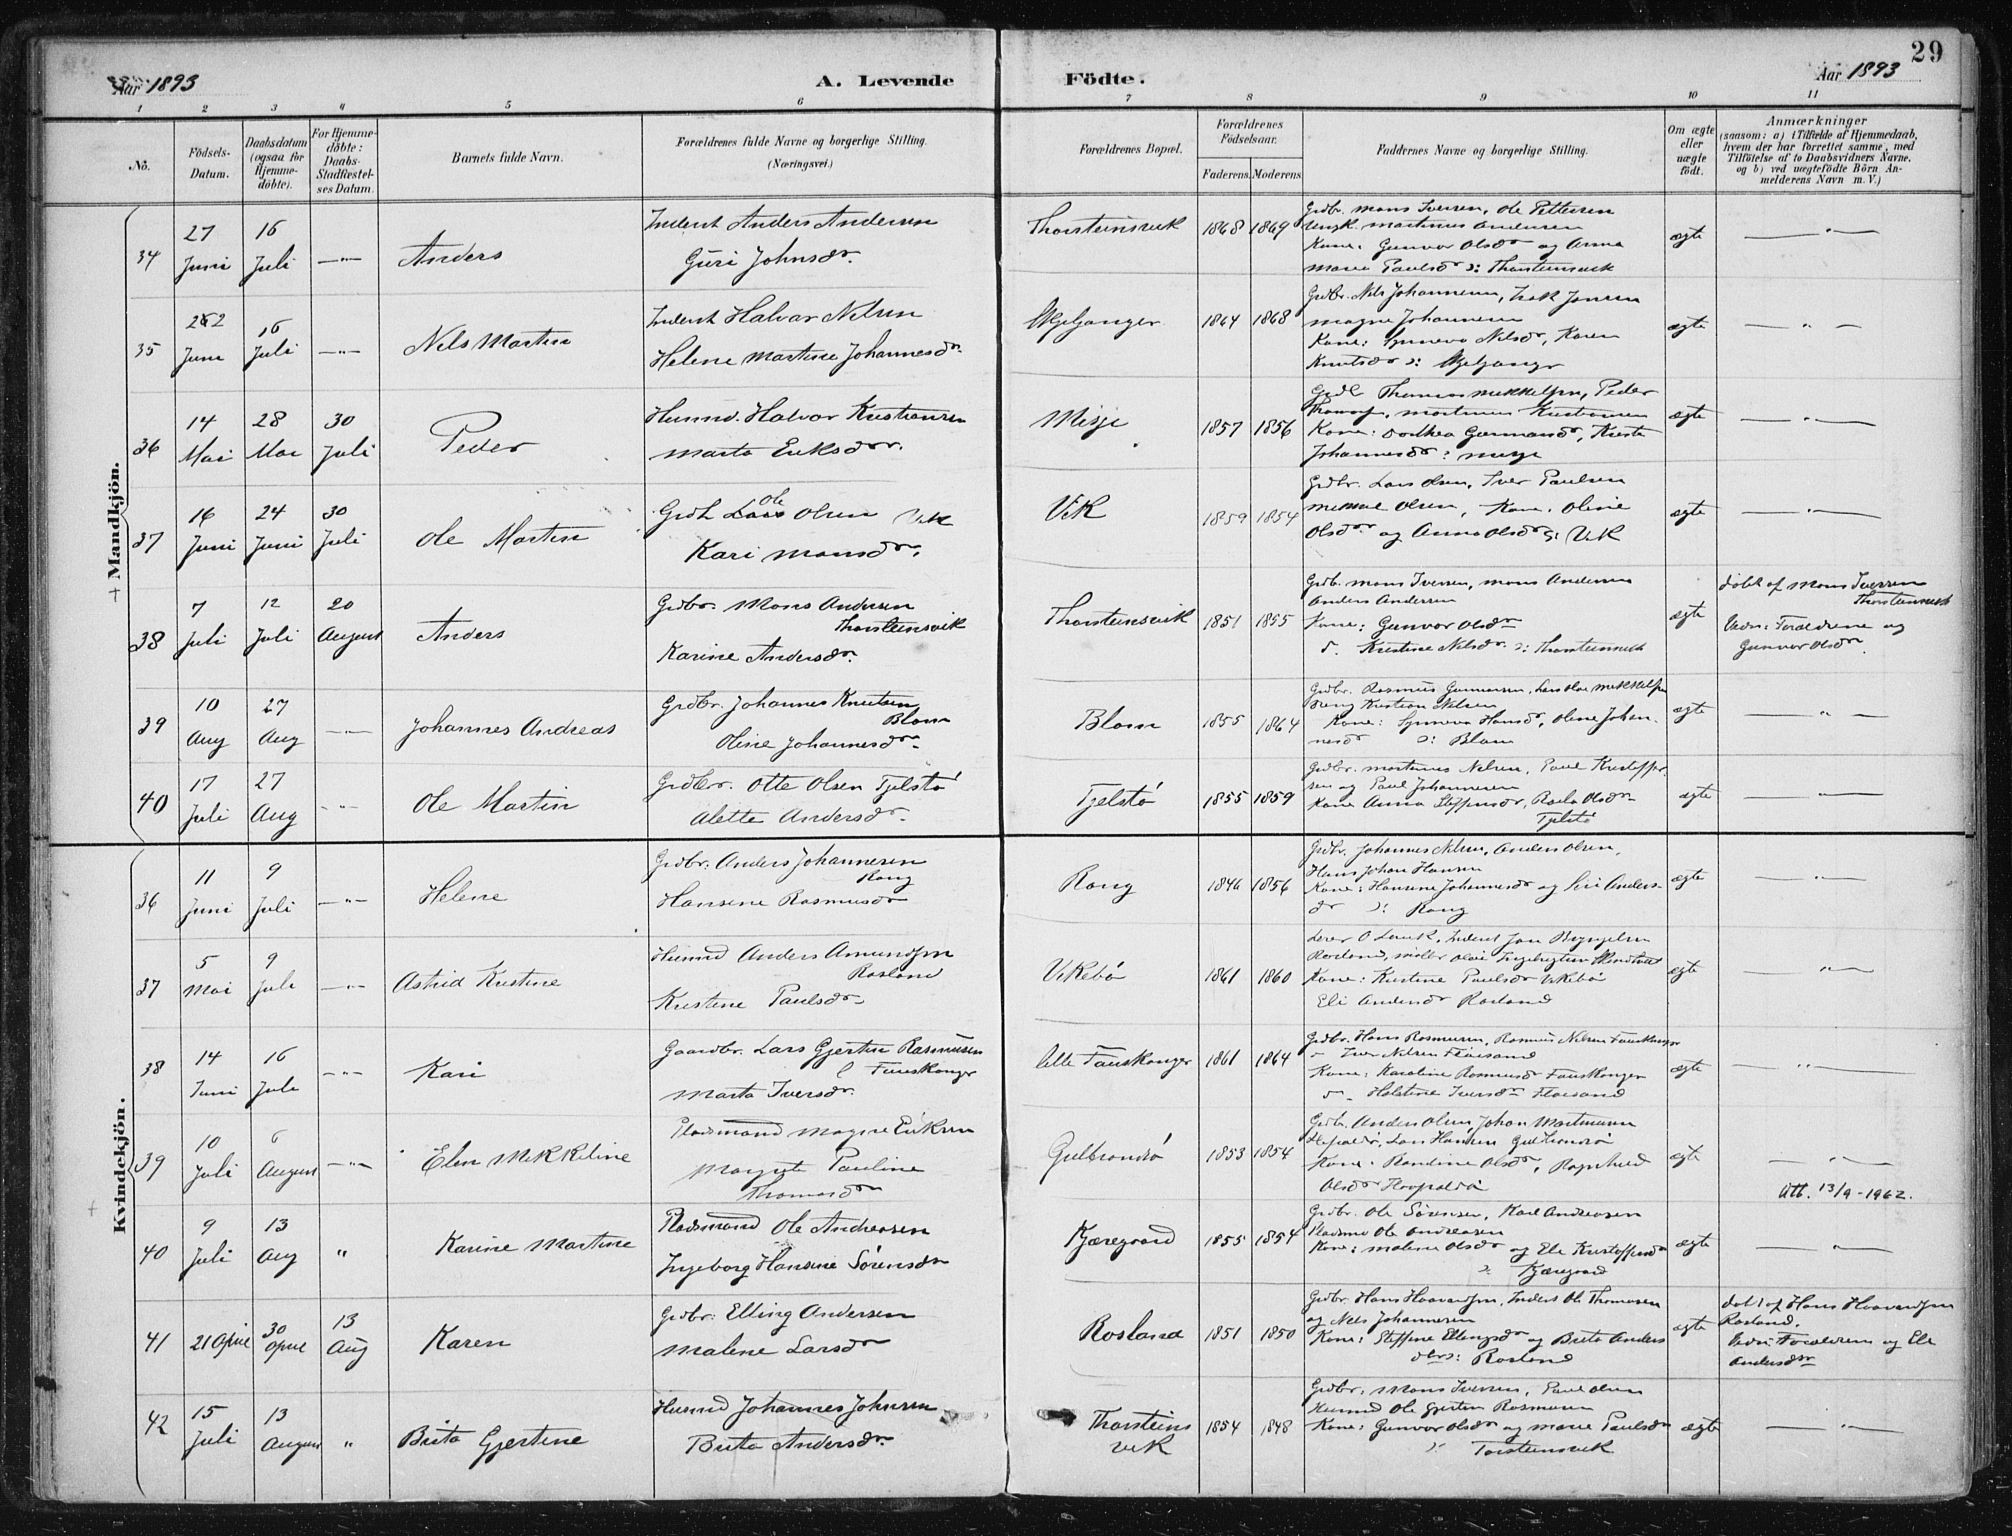 29
Aar 1893
A. Levende
Födte.
Aar 1893
1 2 3 4 5 6 7 8 9 10 11
No.
Födsels-Datum.
Daabsdatum (ogsaa for Hjemme-döbte).
For Hjemme-döbte: Daabs-Stadfæstel-ses Datum.
Barnets fulde Navn.
Forældrenes fulde Navne og borgerlige Stilling. (Næringsvei.)
Forældrenes Bopæl.
Forældrenes Födselsaar.
Faderens. Moderens.
Faddernes Navne og borgerlige Stilling.
Om ægte eller uægte födt.
Anmærkninger
(saasom: a) i Tilfælde af Hjemmedaab, hvem der har forrettet samme, med Tilföielse af to Daabsvidners Navne, og b) ved uægtefödte Börn An-melderens Navn m. V.)
Mandkjön.
34 27 Juni 16 Juli —"— Anders
Inderst Anders Andersen
Guri Johnsdr.
Thorsteinsvik 1868 1869
Grdbr. Mons Iversen, Ole Pettersen
Ungk. Martinus Andersen
Kone: Gunvor Olsdr og Anna
Marie Paulsd ɔ: Thorsteinsvik
ægte —"—
35 Juni 16 Juli —"— Nels Martin
Inderst Halvor Nelsen
Helene Martine Johannesdr.
Skjeljanger 1864 1868
Grdbr. Nils Johannesen, Isak Jansen
Magne Johannesen
Kone: Synneva Nilsdr, Karen
Knutsdr ɔ: Skjeljanger
ægte —"—
36 14 Mai 28 Mai 30 Juli Peder
Husmd. Halvor Kristiansen
Marta Eriksdr.
Misje 1857 1856
Thomas Mekkelsen, Peder
Martinus Kristiansen
Kone: Dorthea Gjermundsd, Kirsti
Johannesdr : Misje
ægte —"—
37 16 Juni 24 Juni 30 Juli Ole Martin
Grdb Ole Olsen Vik
Kari Monsdr.
Vik 1859 1854
Grdbr. Lars Olsen, Iver Paulsen
Olsen, Kone: Oline
Olsdr og Anna Olsdr ɔ: Vik
ægte —"—
38 7 Juli 12 Juli 20 August Anders
Grdbr. Mons Andersen
Thorsteinsvik
Karine Andersdr.
Thorsteinsvik 1851 1855
Grdb. Mons Iversen, Mons Andersen
Anders Andersen
Kone: Gunvor Olsdr
Kristine Nilsdr. ɔ: Thorsteinsvik
ægte
döbt af Mons Iversen
Thorsteinsvik
Vidn: Forældrene og
Gunvor Olsdr.
39 10 Aug 27 Aug —"— Johannes Andreas
Grdbr. Johannes Knutsen
Blom
Oline Johannesdr.
Blom 1855 1864
Grdbr. Rasmus Gunnarsen, Lars Olai Mekkelsen
Dreng Kristian Nilsen
Kone: Synneva Hansdr, Oline Johan-
nesd ɔ: Blom
ægte —"—
40 17 Juli 27 Aug —"— Ole Martin
Grdbr. Otte Olsen Tjelstø
Alette Andersdr.
Tjelstø 1855 1859
Grdbr. Martinus Nilsen, Paul Kristoffer-
sen og Paul Johannesen
Kone Anna Steffensdr, Olsdr
Tjelstø
ægte —"—
Kvindekjön.
36 11 Juni 9 Juli —"— Helene
Grdbr. Anders Johannesen
Rong
Hansine Rasmusdr
Rong 1846 1856
Grdbr. Johannes Nilsen, Anders Olsen,
Hans Johan Hansen
Kone: Hansine Johannesdr og Siri Anders-
dr ɔ: Rong
ægte —"—
37 5 Mai 9 Juli —"— Astrid Kristine
Husmd Anders Amundsen
Rosland
Kristine Paulsdr
Vikebø 1861 1860
Inderst Jon
Rosland,
Kone: Kristine Paulsdr Vikebø
Eli Andersdr Rosland
ægte —"—
38 14 Juni 16 Juli —"— Kari
Gaardbr. Lars Gjertin Rasmusen
Fauskanger
Marta Iversdr.
Fauskanger 1861 1864
Grdbr. Hans Rasmusen, Rasmus Nilsen Fauskanger
Iver Nilsen Floisand
Kone: Karoline Rasmusd Fauskanger
Iversdr Floisand
ægte —"—
39 10 Juli 6 August —"— Elen Mekkeline
Pladsmand Magne Eriksen
Margrete Pauline
Thomasdr
Gulbrandsø 1853 1854
Grdb. Anders Olsen, Johan Martinusen
Lars Hansen Gulbrandsø
Kone: Olsdr, Ragnhild
Olsdr
ægte —"—
Att. 13/9-1962.
40 9 Juli 13 Aug " Karine Martine
Pladsmand Ole Andreasen
Ingeborg Hansine Sørensdr
Kjæregaard 1855 1854
Grdbr. Ole Sørensen, Karl Andreasen
Pladsmd Ole Andreasen
Kone: Malene Olsdr og Eli Kristoffersd
ɔ: Kjæregaard
ægte —"—
41 21 April 30 April 13 Aug Karen
Grdbr. Elling Andersen
Malene Larsdr
Rosland 1851 1850
Grdbr Hans Haavardsen, Inderst Ole Thomasen
og Nels Johannesen
Kone: Steffine Ellingsdr og Brita Anders
dtr ɔ: Rosland
ægte
döbt af Hans Haavardsen
Rosland.
Vidn: Forældrene og Eli
Andersdr
42 15 Juli 13 August " Brita Gjertine
Husmd Johannes Johnsen
Brita Andersdr.
Thorsteins
vik 1854 1848
Grdbr. Mons Iversen, Paul Olsen
Husmd Ole Gjertin Rasmusen
Kone: Gunvor Olsdr og Marie Paulsdr
ɔ: Torsteinsvik
ægte —"—